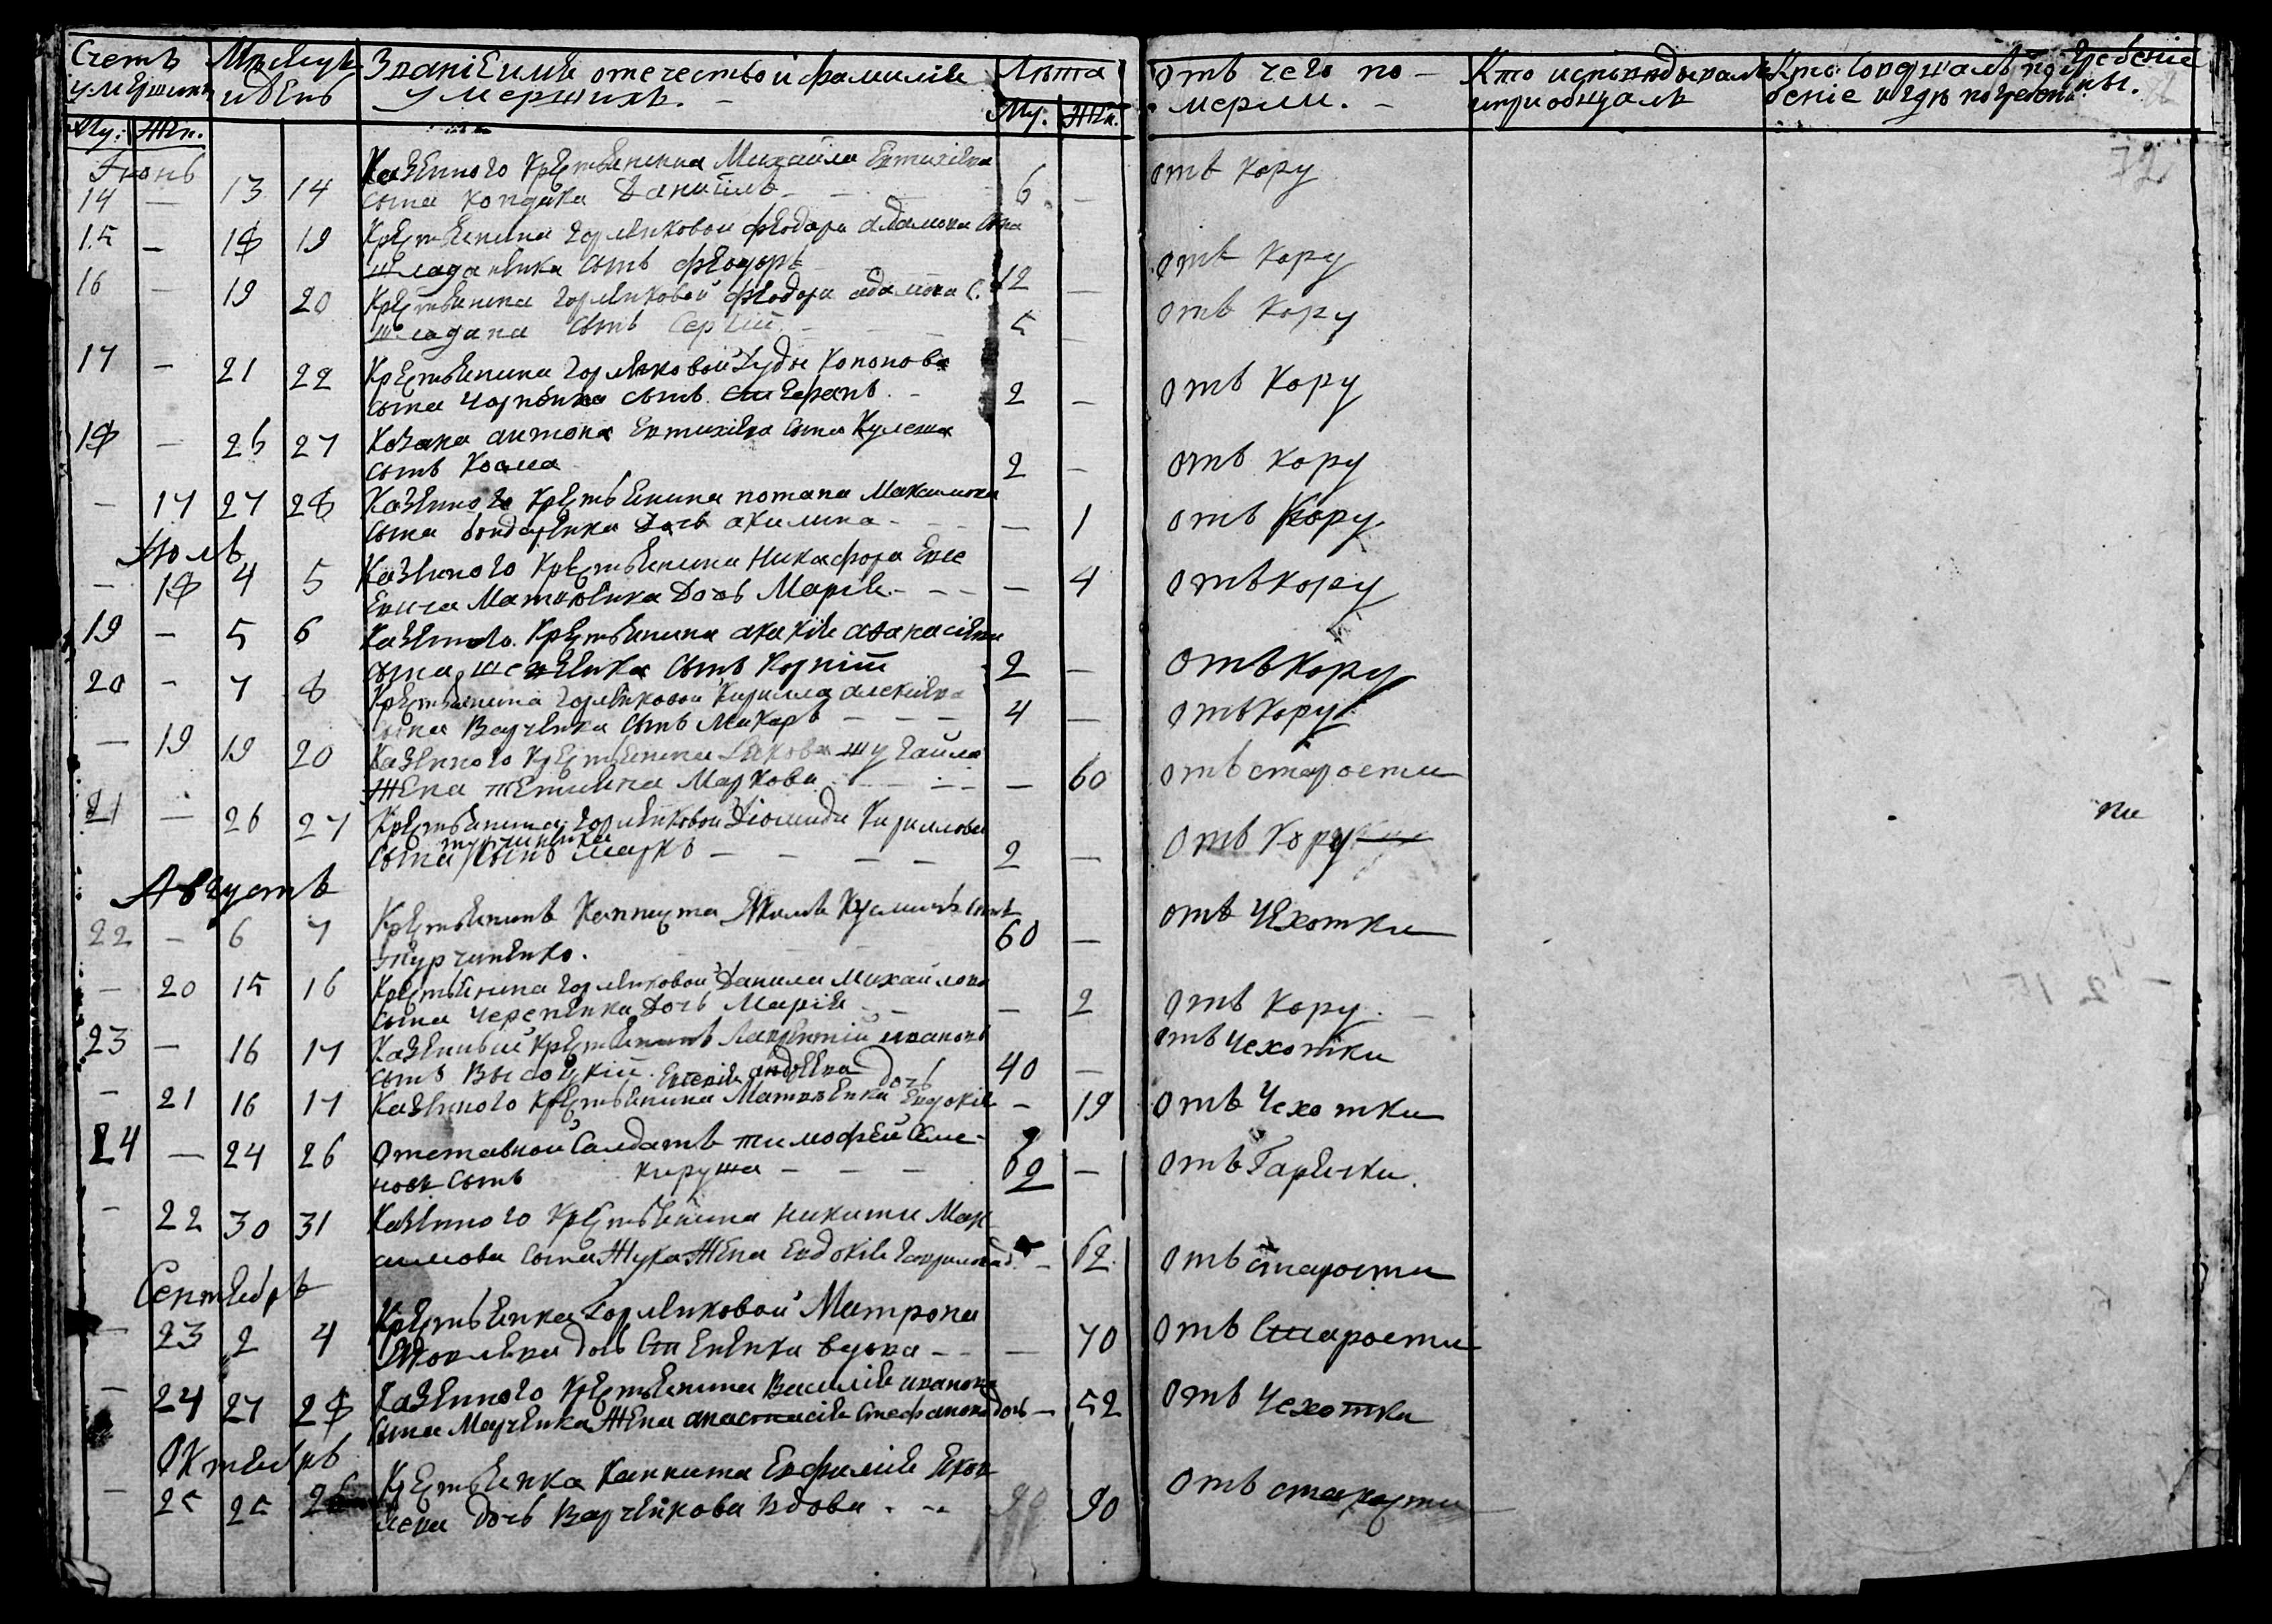 Счетъ умершихъ
Мѣсяцъ и день
Званіе имя отечество и фамилія
умершихъ. –
Лѣта
Му. Жен.
отъ чего по-
мерли. –
Кто исповѣдывалъ
и приобщалъ
Кто совершалъ погребеніе
и гдѣ погребены.
Му: Жен.
Іюнь
14 – 13 14 Казенного крестьянина Михайла Евтихіева
сына Кондака Даніилъ – 6 – отъ кору
15 – 18 19 Крестьянина Горленковой Феодора Адамова сына
сынъ Феодоръ 12 – отъ кору
16 – 19 20 Крестьянина Горленковой Феодора Адамова с.
сынъ Сергій – 5 отъ кору
17 – 21 22 Крестьянина Горленковой Іуды Кононова
сына сынъ Стефанъ – 2 – отъ кору
18 – 26 27 Козака Антона Евтихіева сына Кулеша
сынъ Козма 2 – отъ кору
– 17 27 28 Казенного крестьянина Потапа Максимова
сына Бондаренка дочь Акилина – – 1 отъ кору
Іюль
– 18 4 5 Казенного крестьянина Никифора Евсе
евича Матвѣенка дочь Марія – – 4 отъ кору
19 – 5 6 Казенного крестьянина Акакія Афанасіева
сына сынъ Корній 2 – отъ кору
20 – 7 8 Крестьянина Горленковой Кирилла Алексіева
сына Варченка сынъ Макаръ – 4 – отъ кору
– 19 19 20 Казенного крестьянина Якова Шугайла
жена Тетіяна Маркова – 60 отъ старости
21 – 26 27 Крестьянина Горленковой Діомида Кирилова
сына Турчиненка сынъ Марко – 2 – отъ кору
Августъ
22 – 6 7 Крестьянинъ Капписта Яковъ Кузминъ сынъ
Турчиненко. 60 – отъ чехотки
– 20 15 16 Крестьянина Горленковой Данила Михайлова
сына Черепенка дочь Марія – 2 отъ кору. –
23 – 16 17 Казенный крестьянинъ Лаврентій Ивановъ
сынъ Высоцкій. 40 – отъ чехотки
Андреева дочь
– 21 16 17 Казенного крестьянина Матвѣенка Евдокія – 19 отъ чехотки
24 – 24 26 Отставной салдатъ Тимофей Семе-
новъ сынъ Кируша – 62 – отъ гарячки.
– 22 30 31 Казенного крестьянина Никиты Мак
симова сына Жука жена Евдокія Гаврилова д. – 62 отъ старости
Сентябрь
– 23 2 4 Крестьянка Горленковой Матрона
Яковлева дочь вдова – – 70 отъ старости
– 24 27 28 Казенного крестьянина Василія Иванова
сына Марченка жена Анастасія Стефанова дочь – 52 отъ чехотки
Октябрь
– 25 25 26 Крестьянка Капписта Евфимія Яков
лева дочь Варченкова вдова – 90 отъ старости